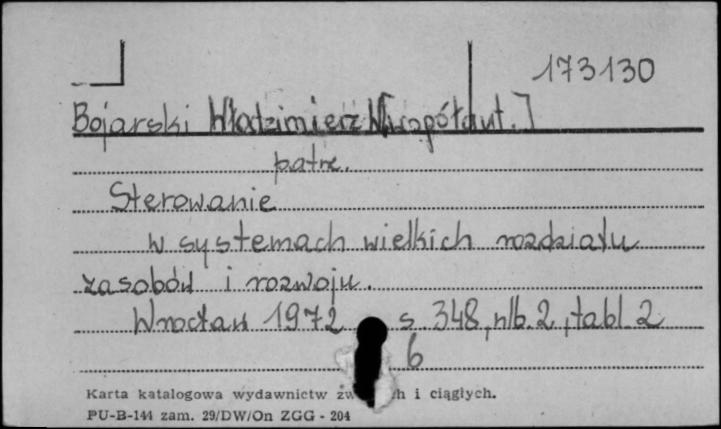 173130
Bojarski Włodzimierz W[współaut.]
patrz.
Sterowanie
w systemach wielkich rozdziału
zasobów i rozwoju.
Wrocław 1972 s. 348, nlb. 2, tabl. 2
6
Karta katalogowa wydawnictw i ciągłych.
PU-B-144 zam. 29/DW/On ZGG - 204